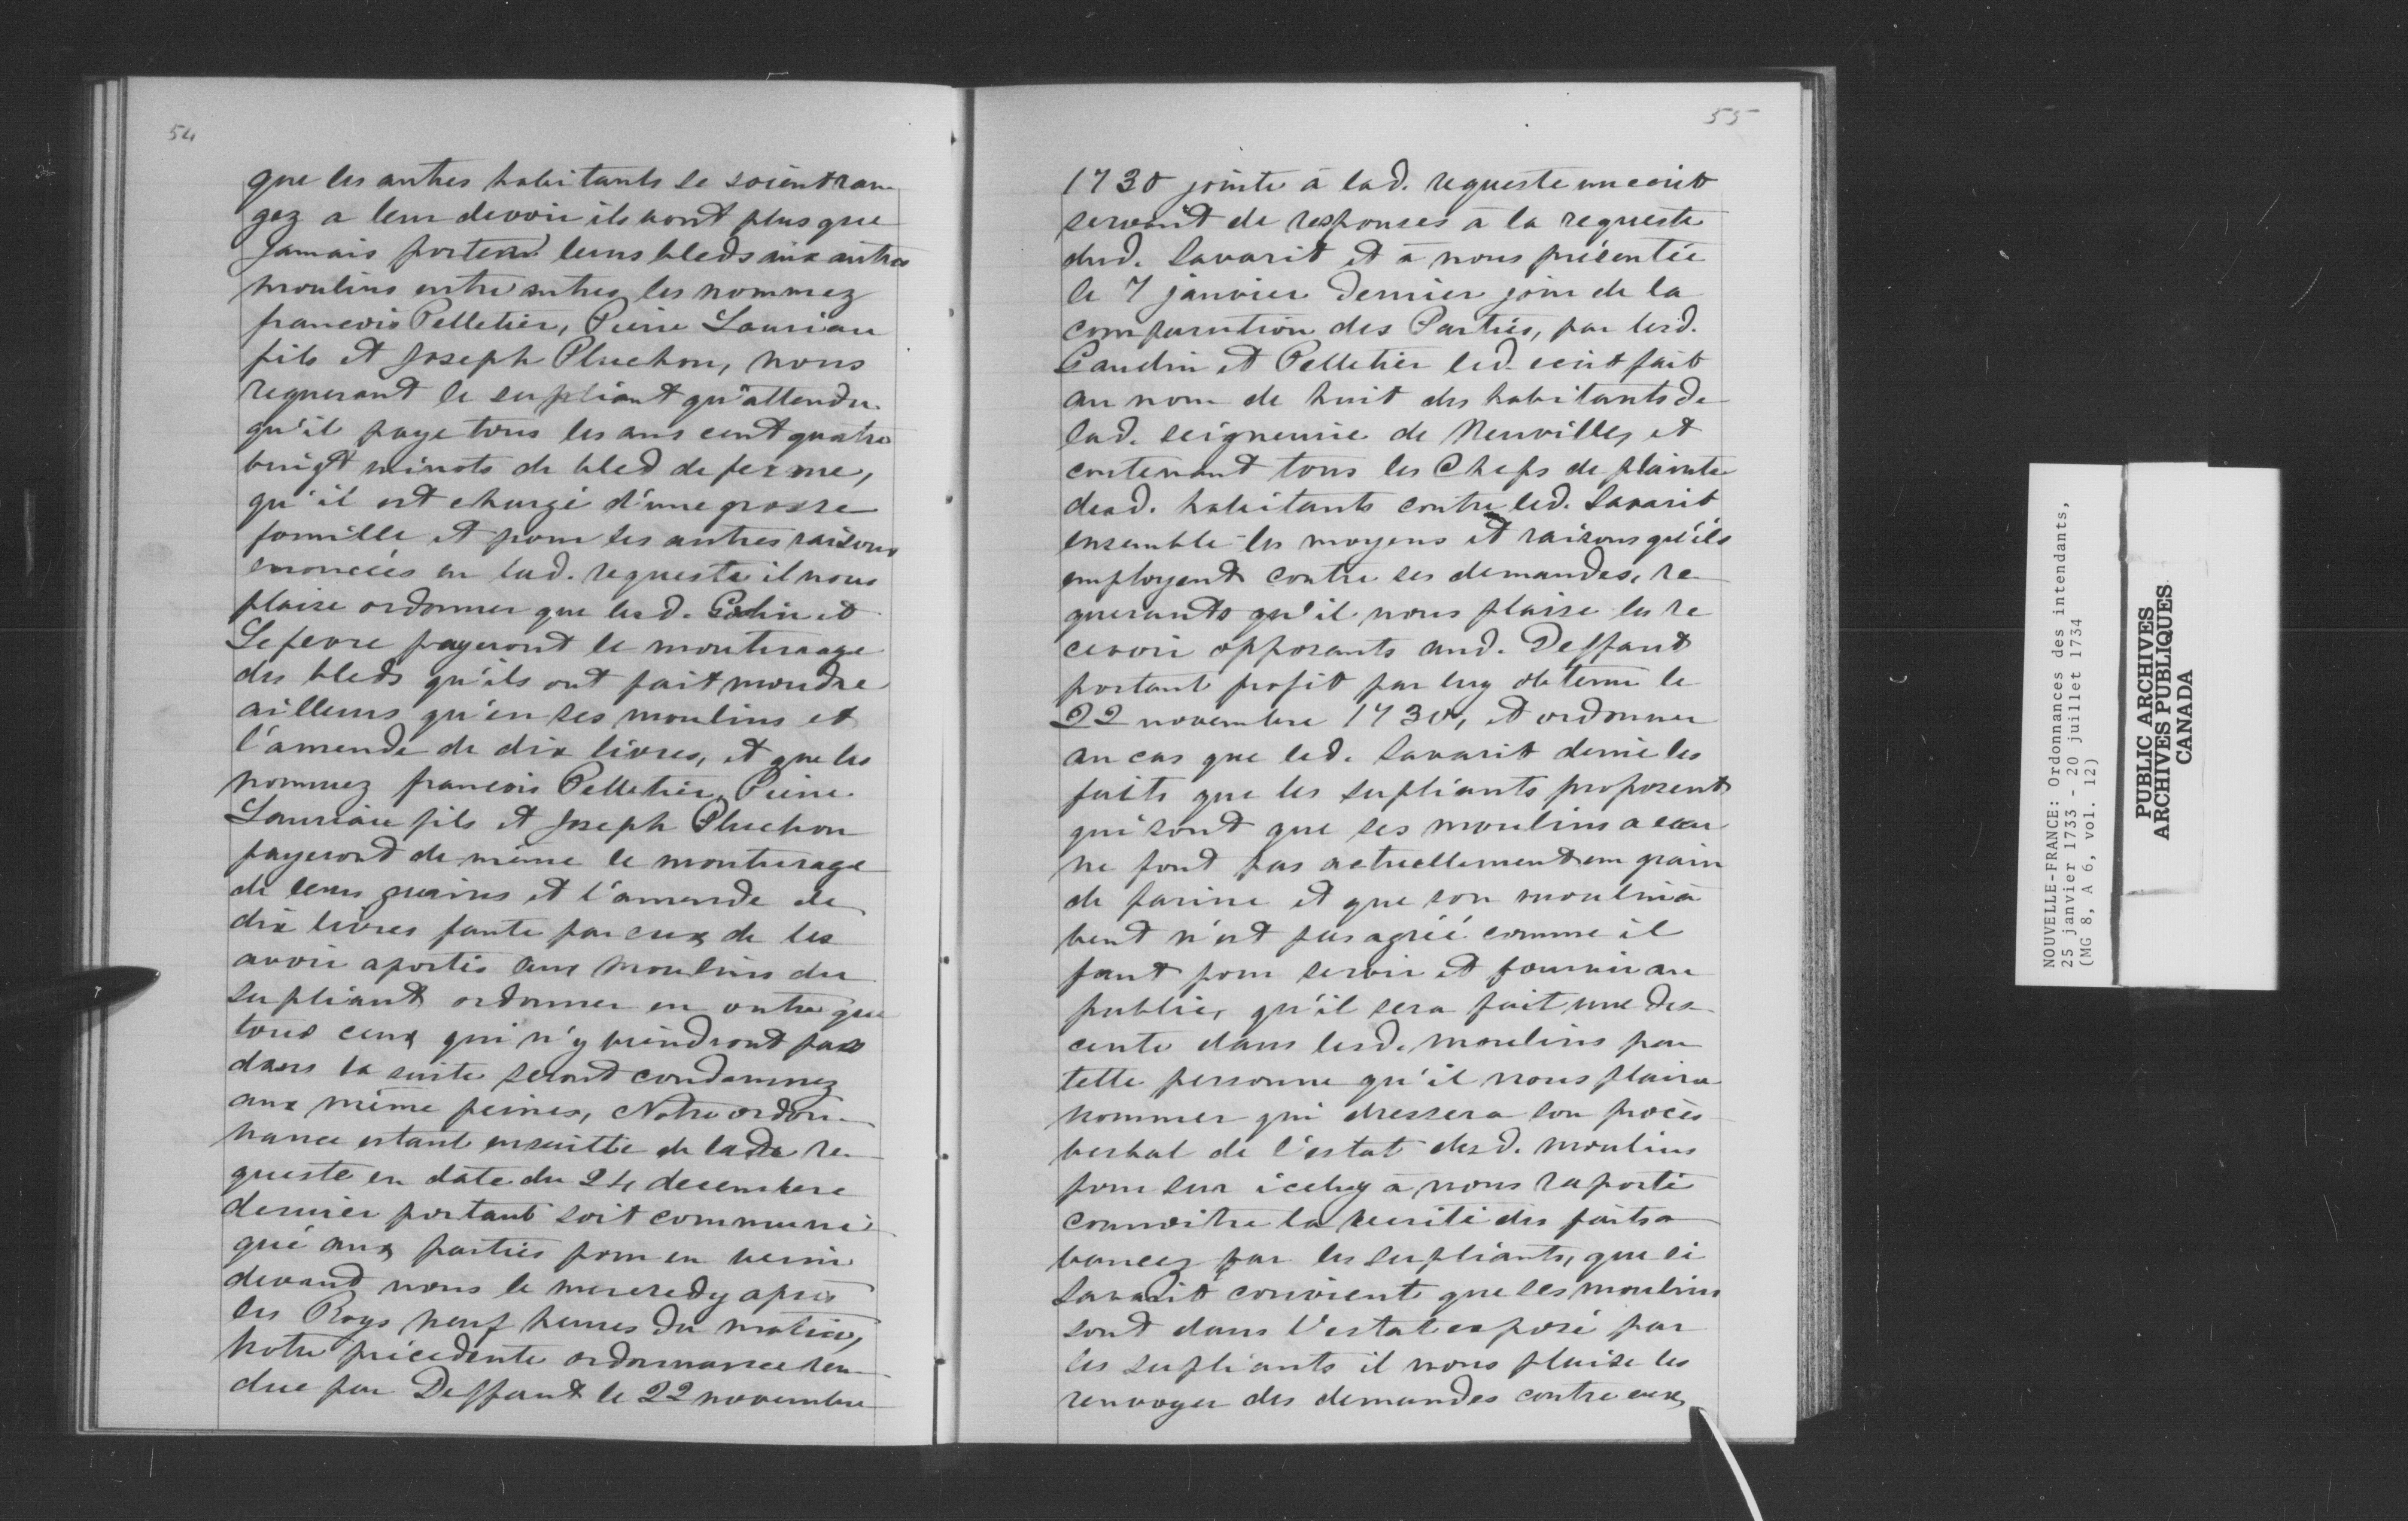 54
que les autres habitants se soient ran
gez a leur devoir ils vont plus que
Jamais porter leurs bleds aux autres
moulins entre autres les nommez
francois Pelletier, Pierre Lauriau
fils et Joseph Pluchon, nous
requerant le supliant qu'attendu
qu'il paye tous les ans cent quatre
vingt minots de bled de ferme,
qu'il est chargé d'une grosse
famille et pour les autres raisons
enoncées en lad. requeste il nous
plaise ordonner que lesd. et
Lefevre payeront le mouturage
des bleds qu'ils ont fait moudre
ailleurs qu'en ses moulins et
l'amende de dix livres, et que les
nommez francois Pelletier, Pierre
Lauriau fils et Joseph Pluchon
payeront de même le mouturage
de leurs grains et l'amende de
dix livres faute par eux de les
avoir aportés aux moulins du
supliant ordonner en outre que
tous ceux qui n'y viendront pas
dans la suite seront condamnez
aux même peines, Notre ordon
nance estant ensuitte de lade re
queste en date du 24 decembre
dernier portant soit communi
qué aux parties pour en venir
devant nous le mercredy après
les Roys neuf heures du matin,
notre précedente ordonnance ren
due par Deffaut le 22 novembre
55
1730 jointe à lad. requeste un ecrit
servant de responses à la requeste
dud. Savarit et à nous présentée
le 7 janvier dernier jour de la
comparution des Parties, par lesd.
Gaudin et Pelletier led. ecrit fait
au nom de huit des habitants de
lad. seigneurie de Neuville, et
contenant tous les Chefs de plainte
desd. habitants contre led. Savarit
ensemble les moyens et raisons qu'ils
employent contre ses demandes, re
querants qu'il nous plaise les re
cevoir opposants aud. Deffaut
portant profit par luy obtenu le
22 novembre 1730, et ordonner
au cas que led. Savarit denie les
faits que les supliants proposent
qui sont que ses moulins a eau
ne font pas actuellement un grain
de farine et que son moulin à
vent n'est pas agréé comme il
faut pour servir et fournir au
public, qu'il sera fait une des
cente dans lesd. moulins par
telle personne qu'il nous plaira
nommer qui dressera son procès
verbal de l'estat desd. moulins
pour sur iceluy à nous raporté
connoitre la verité des faits a
vancez par les supliants, que si
Savarit convient que ses moulins
sont dans l'estat exposé par
les supliants il nous plaise les
renvoyer des demandes contre eux
NOUVELLE-FRANCE: Ordonnances des intendants,
25 janvier 1733 - 20 juillet 1734
(MG 8, A 6, vol. 12)
PUBLIC ARCHIVES
ARCHIVES PUBLIQUES
CANADA